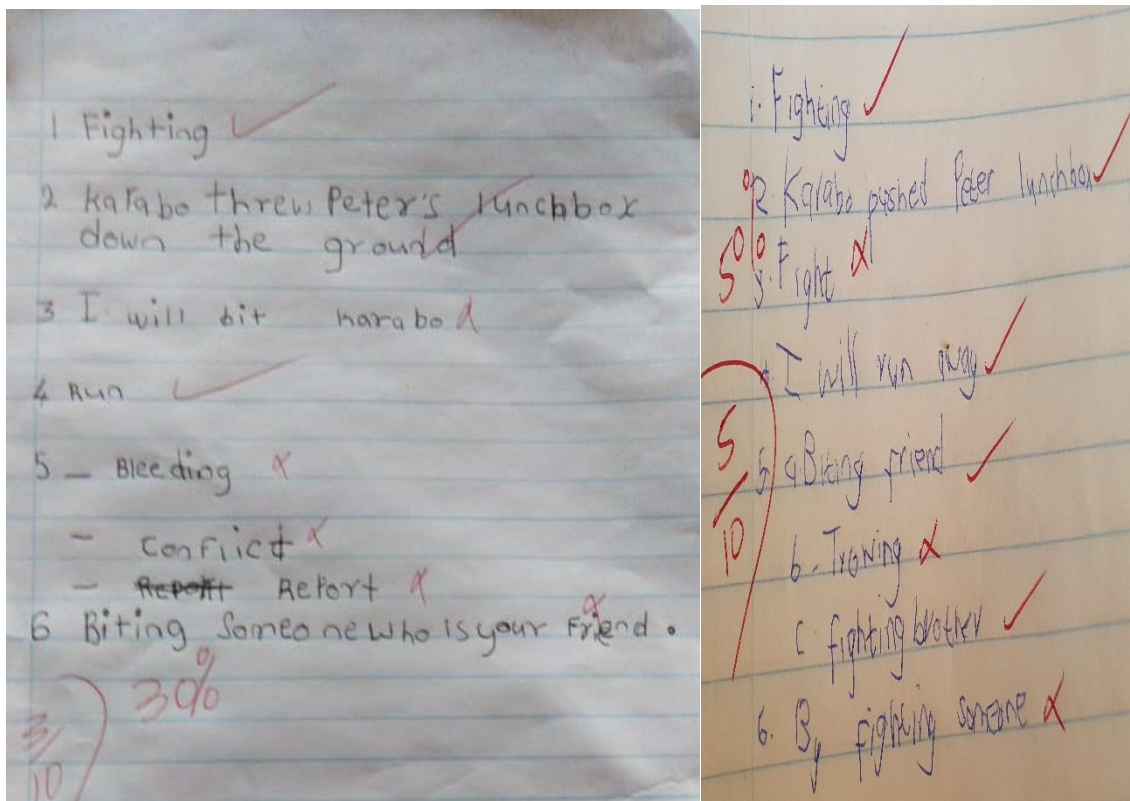 1 Fighting
2 Karabo threw Peter's lunchbox
down the ground
3 I will bit karabo
4 Run
5 - Bleeding
- Conflict
- Report Report
6 Biting Someone who is your Friend.
30%
3/10
1. Fighting
2. Karabo pushed Peter lunchbox
50%
3. Fight
4 I will run away
5/10
5 a Biting friend
b. Trowing
c. fighting brother
6. By fighting someone